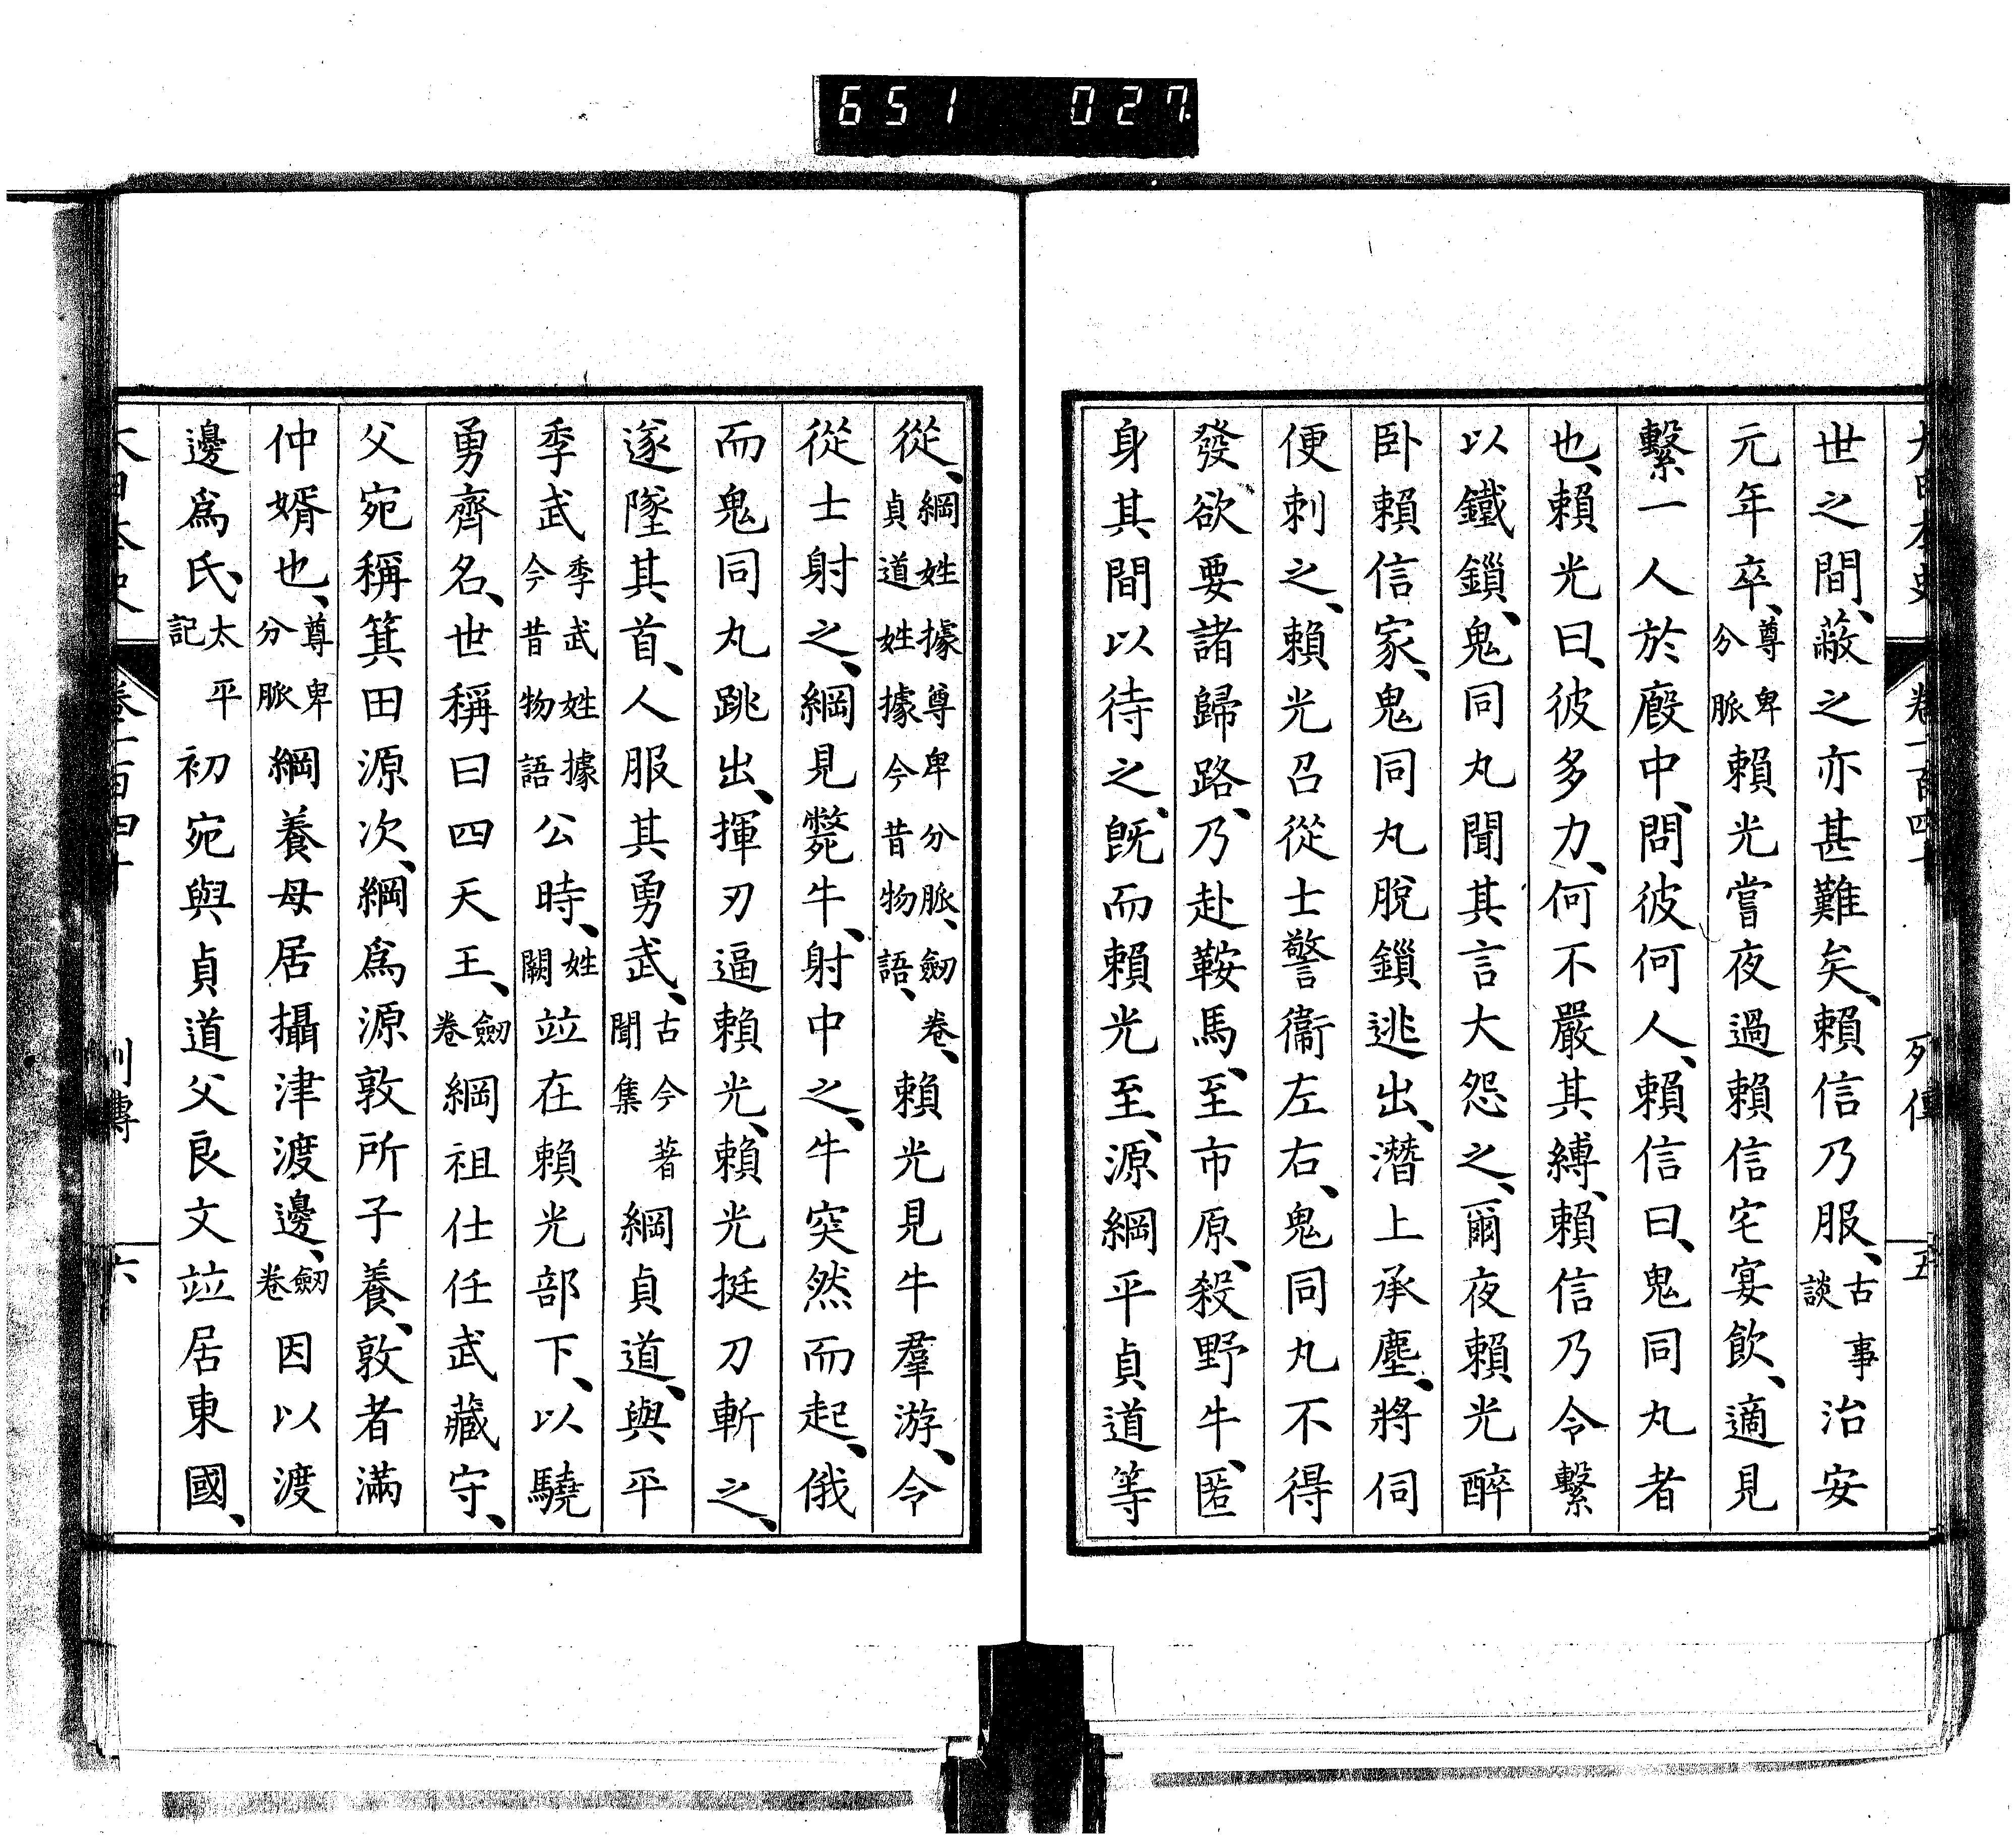 651 027
大日本史 卷一百四十 列傳 五
世之間、蔽之亦甚難矣、賴信乃服、古事談治安
元年卒、尊卑分脈賴光嘗夜過賴信宅宴飲、適見
繫一人於廄中、問彼何人、賴信曰、鬼同丸者
也、賴光曰、彼多力、何不嚴其縛、賴信乃令繫
以鐵鎖、鬼同丸聞其言大怨之、爾夜賴光醉
卧賴信家、鬼同丸脫鎖逃出、潛上承塵、將伺
便刺之、賴光召從士警衞左右、鬼同丸不得
發欲要諸歸路、乃赴鞍馬、至市原、殺野牛、匿
身其間以待之、旣而賴光至、源綱平貞道等
從、綱姓據尊卑分脈、劒卷、貞道姓據今昔物語、賴光見牛羣游、令
從士射之、綱見斃牛、射中之、牛突然而起、俄
而鬼同丸跳出、揮刃逼賴光、賴光挺刀斬之、
遂墜其首、人服其勇武、古今著聞集綱貞道、與平
季武季武姓據今昔物語公時、姓闕竝在賴光部下、以驍
勇齊名、世稱曰四天王、劒卷綱祖仕任武藏守、
父宛稱箕田源次、綱爲源敦所子養、敦者滿
仲婿也、尊卑分脈綱養母居攝津渡邊、劒卷因以渡
邊爲氏、太平記初宛與貞道父良文竝居東國、
大日本史 卷一百四十 列傳 六